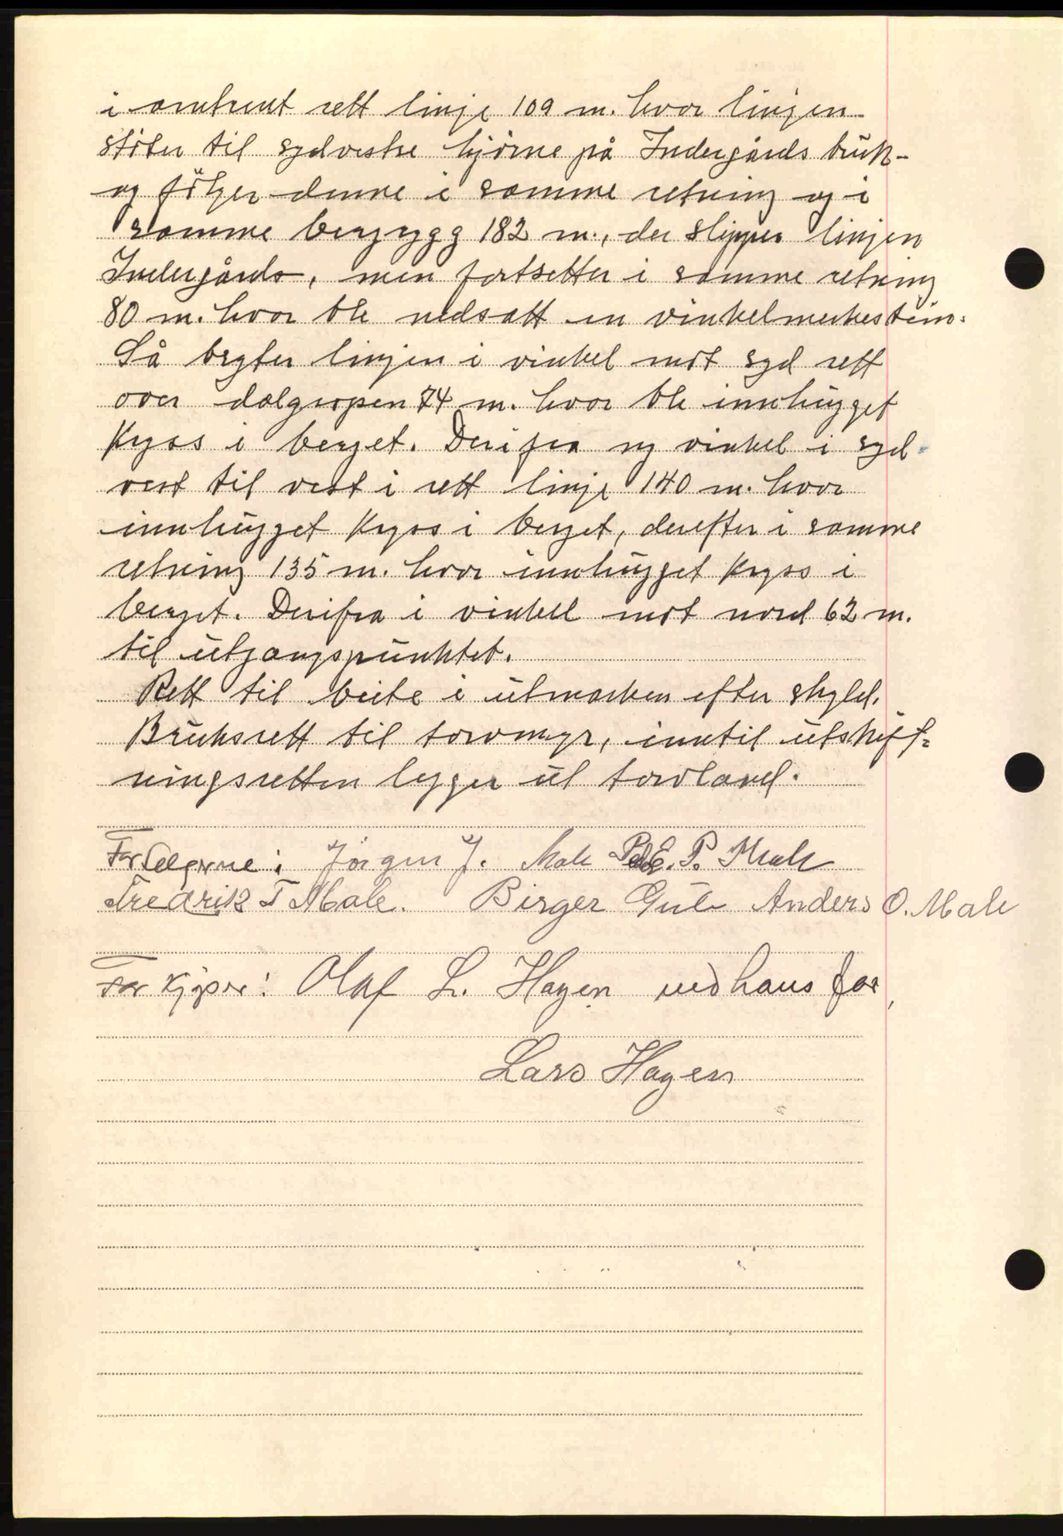 i omtrent rett linje 109 m. hvor linjen
støter til sydvestre hjörne på Indergårds bruk-
og fölger denne i samme retning og i
samme bergrygg 182 m., der slipper linjen
Indergårds, men fortsetter i samme retning
80 m. hvor ble nedsatt en vinkelmerkestein.
Så bryter linjen i vinkel mot syd rett
over dalgropen 74 m. hvor ble innhugget
Kryss i berget. Derifra ny vinkel i syd
vest til vest i rett linje 140 m. hvor
innhugget Kryss i berget, derefter i samme
retning 135 m. hvor innhugget Kryss i
berget. Derifra i vinkell mot nord 62 m.
til utgangspunktet.
Rett til beite i utmarken efter skyld.
Bruksrett til torvmyr, inntil utskift-
ningsretten legger ut torvland.
For Selgerne: Jörgen J. Male P. E. P. Male
Fredrik T Male. Birger Gule Anders O. Male
For Kjøper: Olaf L. Hagen ved hans far,
Lars Hagen